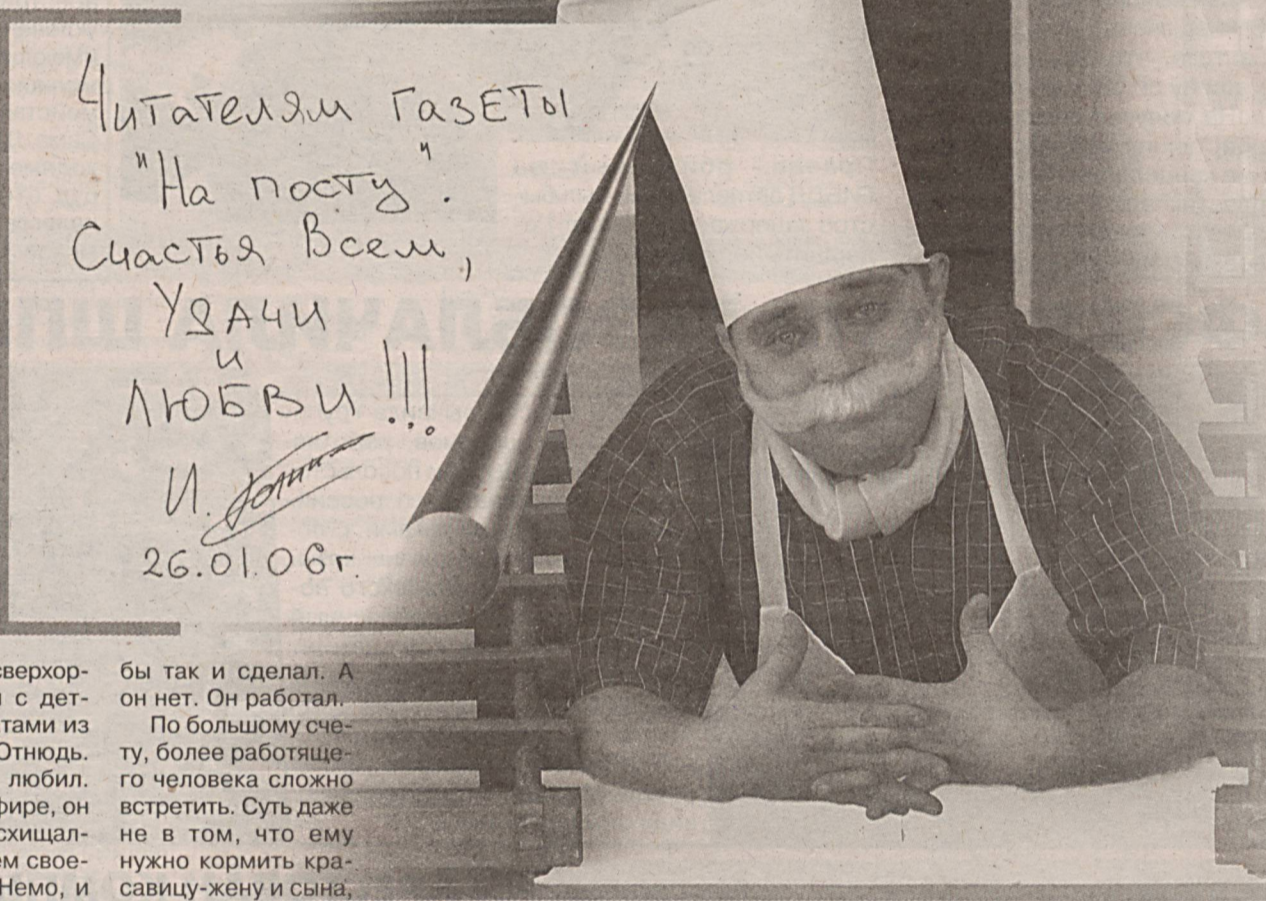 Читателям газеты
"На посту".
Счастья Всем,
Удачи
и
Любви!!!
И.
26.01.06г.
сверхор-
с дет-
тами из
Отнюдь.
любил.
фире, он
схищал-
ем свое-
Немо, и
бы так и сделал. А
он нет. Он работал.
По большому сче-
ту, более работяще-
го человека сложно
встретить. Суть даже
не в том, что ему
нужно кормить кра-
савицу-жену и сына,